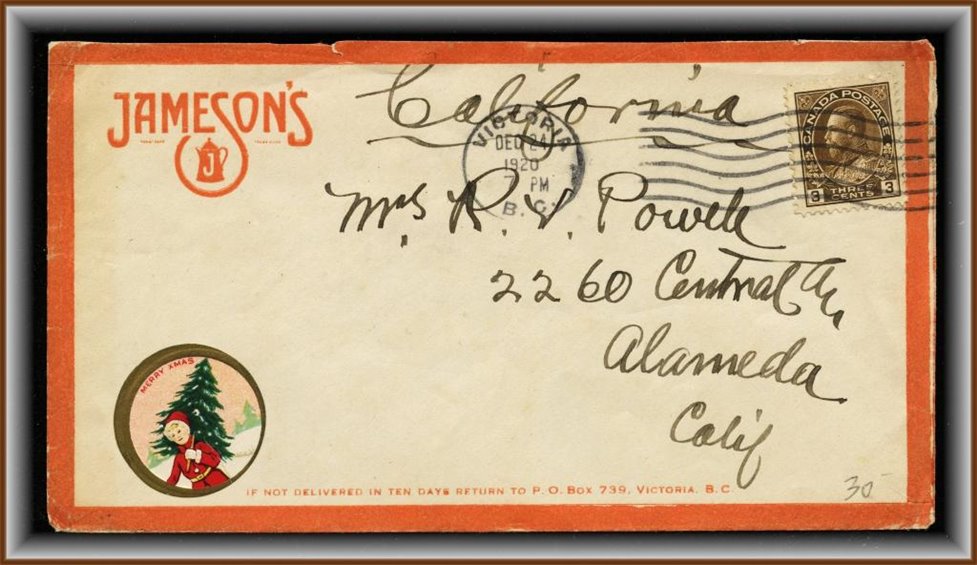 JAMESON'S
J
California
VICTORIA
DEC 24
1920
7 PM
B.C.
CANADA POSTAGE
3 THREE CENTS 3
Mrs. R. V. Powell
2260 Central Av,
Alameda.
Calif
MERRY XMAS
IF NOT DELIVERED IN TEN DAYS RETURN TO P.O. BOX 739, VICTORIA, B.C
30